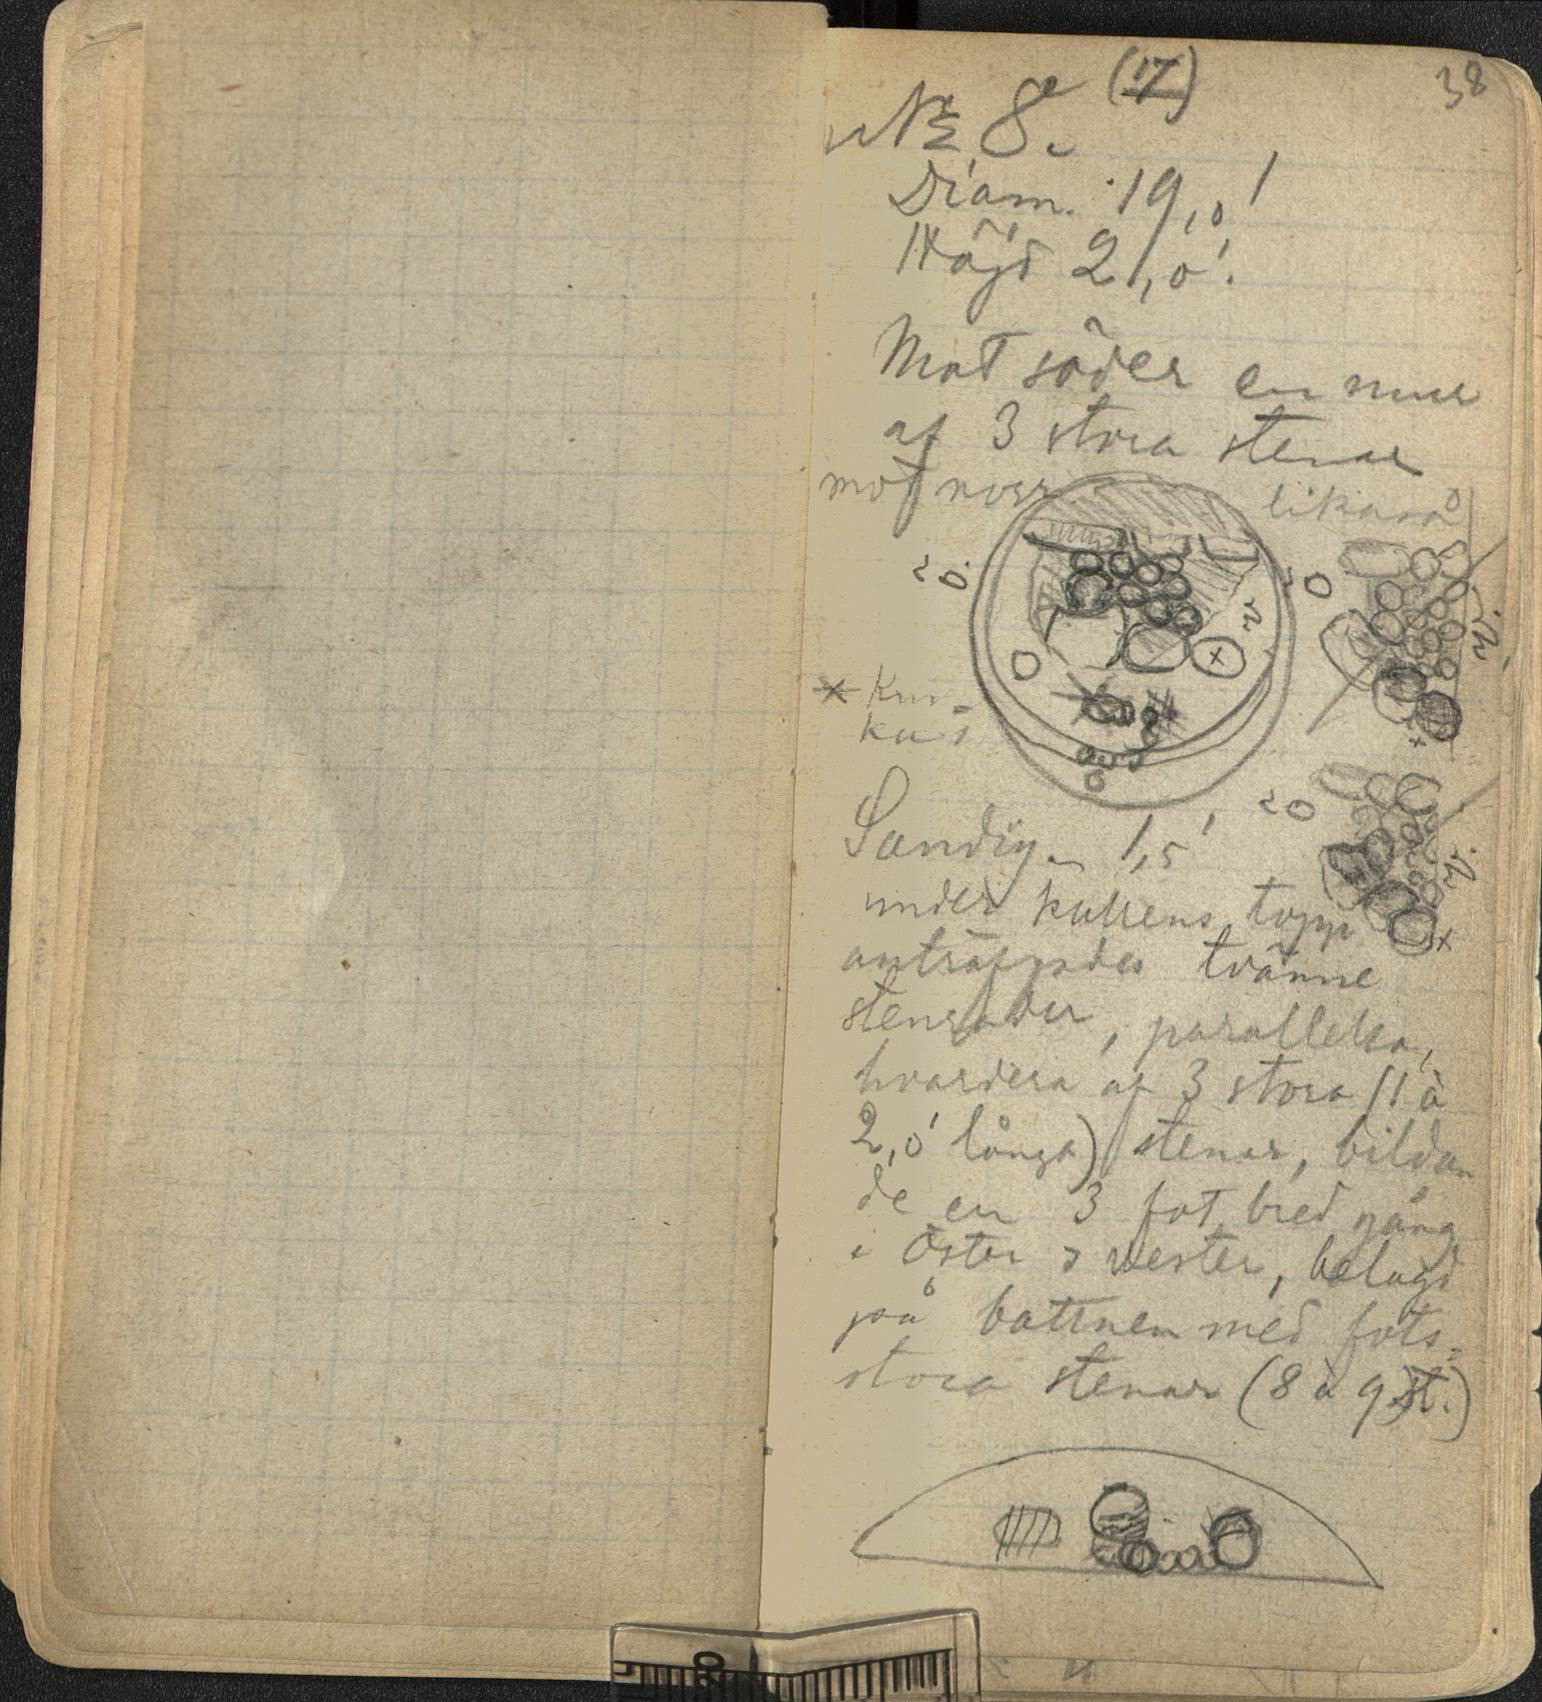 38
(17)
№ 8.
Diam. 19,0'
Höjd 2,0'.
Mot söder en mur
af 3 stora stenar
mot norr likaså
Sandig. 1,5'
under kullens topp
anträffades tvänne
stenrader, parallella,
hvardera af 3 stora (1 à
2,0' långa) stenar, bildan
de en 3 fot bred gång
i öster o vester, belagd
på bottnen med fots-
stora stenar (8 à 9 st.)